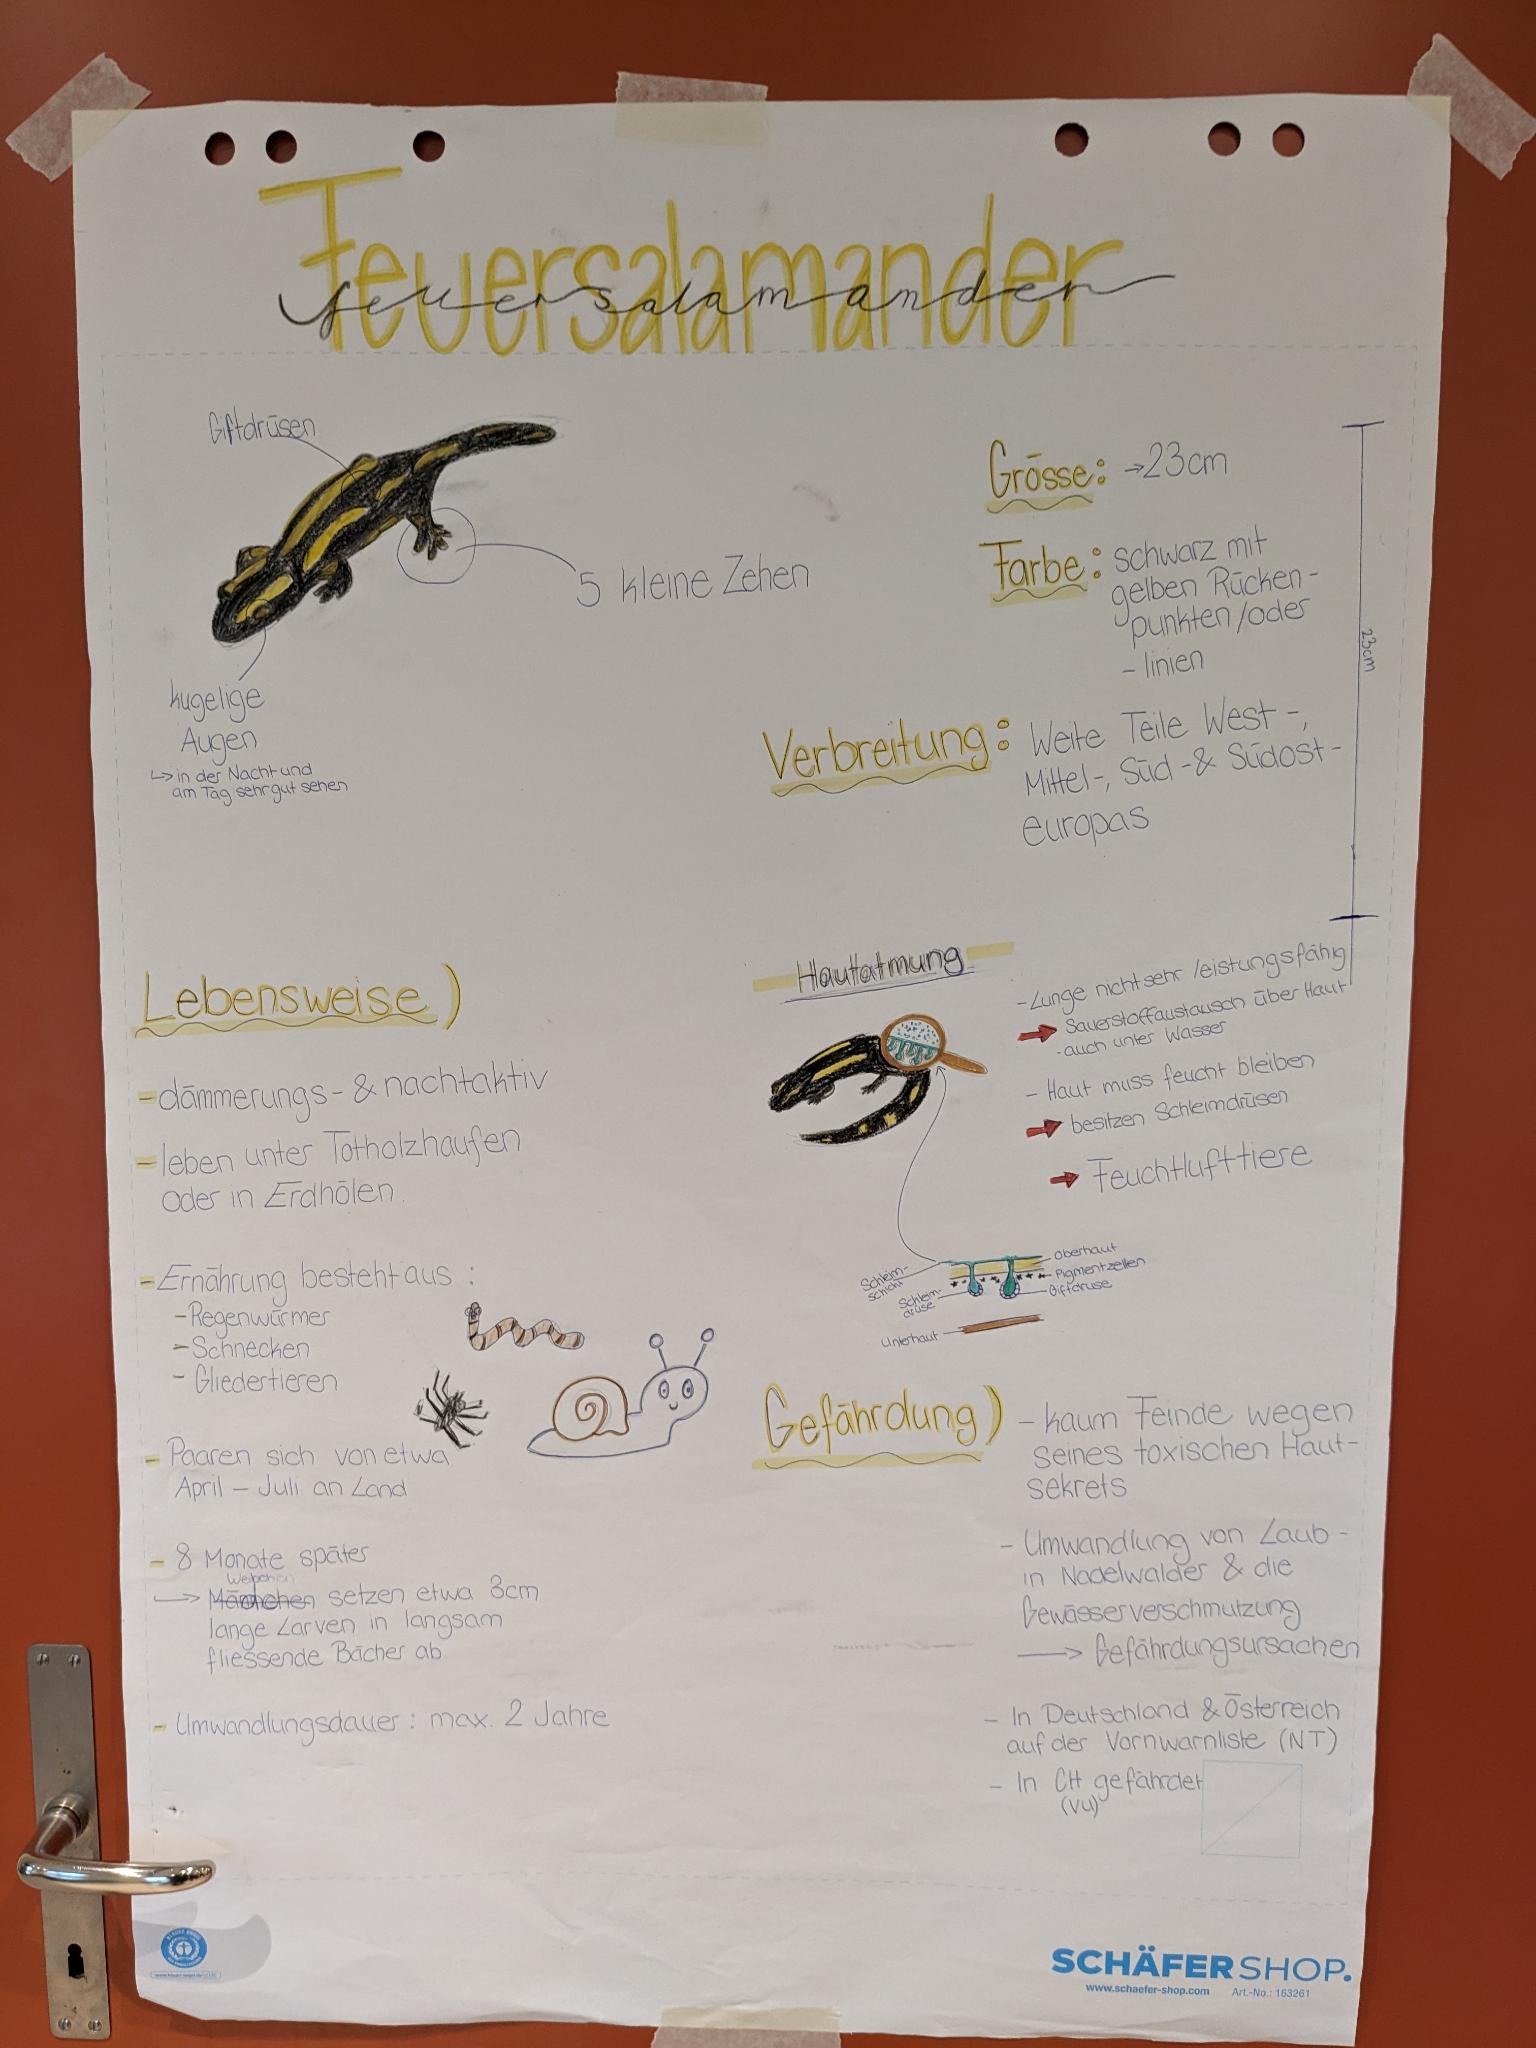 Feuersalamander
feuersalamander
Giftdrüsen
5 kleine Zehen
kugelige
Augen
↳ in der Nacht und
am Tag sehr gut sehen
Grösse: → 23cm
Farbe: schwarz mit
gelben Rücken-
punkten/oder
- linien
23cm
Verbreitung: Weite Teile West-,
Mittel-, Süd- & Südost-
europas
Lebensweise)
- dämmerungs- & nachtaktiv
- leben unter Totholzhaufen
oder in Erdhölen.
- Ernährung besteht aus :
- Regenwürmer
- Schnecken
- Gliedertieren
- Paaren sich von etwa
April – Juli an Land
- 8 Monate später
Weibchen
→ Mädchen setzen etwa 3cm
lange Larven in langsam
fliessende Bäche ab.
- Umwandlungsdauer : max. 2 Jahre
Hautatmung
- Lunge nicht sehr leistungsfähig
→ Sauerstoffaustausch über Haut
- auch unter Wasser
- Haut muss feucht bleiben
→ besitzen Schleimdrüsen
→ Feuchtlufttiere
Schleim-
schicht
Schleim-
drüse
Unterhaut
Oberhaut
Pigmentzellen
Giftdrüse
Gefährdung) - kaum Feinde wegen
seines toxischen Haut-
sekrets
- Umwandlung von Laub-
in Nadelwälder & die
Gewässerverschmutzung
→ Gefährdungsursachen
- In Deutschland & Österreich
auf der Vornwarnliste (NT)
- In CH gefährdet
(VU)
SCHÄFER SHOP.
www.schaefer-shop.com Art.-No.: 163261